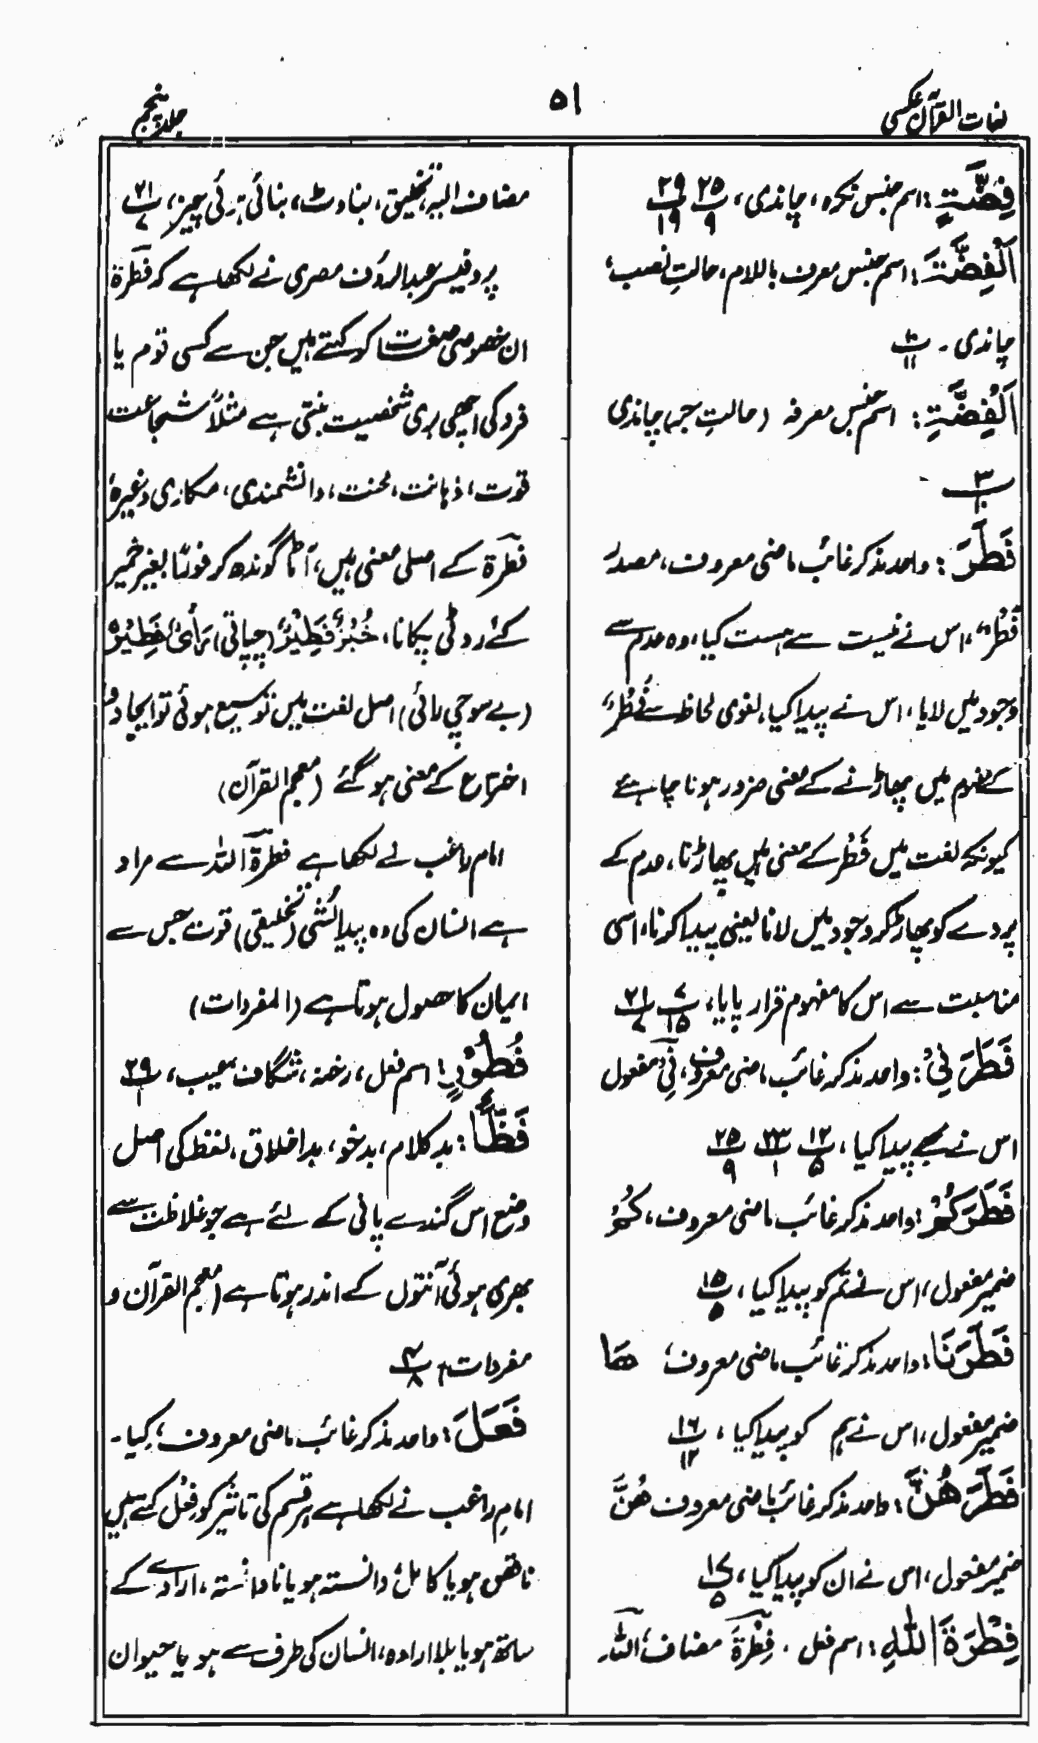 لغات القرآن عکسی
۵۱
جلد پنجم
فِضَّةٍ: اسم جنس نکره، چاندی، پ۲۵/۹ پ۲۹/۱۹
اَلْفِضَّةَ: اسم جنس معرف باللام، حالتِ نصب،
چاندی۔ پ۱۰/۱۱
اَلْفِضَّةِ: اسم جنس معرفہ (حالتِ جر) چاندی
پ۳/۱۰
فَطَرَ: واحد مذکر غائب ماضی معروف، مصدر
فَطْرٌ، اس نے نیست سے ہست کیا، وہ عدم سے
وجود میں لایا، اس نے پیدا کیا، لغوی لحاظ سے فَطْرٌ،
کے مفہوم میں پھاڑنے کے معنی ضرور ہونا چاہئے
کیونکہ لغت میں فَطْر کے معنی ہیں پھاڑنا، عدم کے
پردے کو پھاڑ کر وجود میں لانا یعنی پیدا کرنا، اسی
مناسبت سے اس کا مفہوم قرار پایا، پ۷/۱۵ پ۲۱/۷
فَطَرَنِیْ: واحد مذکر غائب ماضی معروف، نِیْ مفعول
اس نے مجھے پیدا کیا، پ۱۲/۵ پ۲۳/۱ پ۲۵/۹
فَطَرَکُمْ: واحد مذکر غائب ماضی معروف، کُمْ
ضمیر مفعول، اس نے تم کو پیدا کیا، پ۱۵/۵
فَطَرَنَا: واحد مذکر غائب ماضی معروف، ھَا
ضمیر مفعول، اس نے ہم کو پیدا کیا، پ۱۶/۱۲
فَطَرَهُنَّ: واحد مذکر غائب ماضی معروف هُنَّ
ضمیر مفعول، اس نے ان کو پیدا کیا، پ۱۷/۵
فِطْرَةَ اللّٰهِ: اسم فعل، فِطْرَةَ مضاف، اللّٰہ۔
مضاف الیہ، تخلیق، بناوٹ، بنائی ہوئی چیز، پ۲۱/۷
پروفیسر عبدالرؤف مصری نے لکھا ہے کہ فطرۃ
ان خصوصی صفت کو کہتے ہیں جن سے کسی قوم یا
فرد کی اچھی بری شخصیت بنتی ہے مثلاً شجاعت
قوت، ذہانت، محنت، دانشمندی، مکاری وغیرہ
فطرۃ کے اصلی معنی ہیں، آٹا گوندھ کر فوراً بغیر خمیر
کئے روٹی پکانا، خُبْزٌ فَطِیْرٌ (چپاتی) رَأیٌ فَطِیْرٌ
(بے سوچی رائی) اصل لغت میں توسیع ہوئی تو ایجاد و
اختراع کے معنی ہو گئے (معجم القرآن)
امام راغب نے لکھا ہے فطرۃ اللہ سے مراد
ہے انسان کی وہ پیدائشی (تخلیقی) قوت جس سے
ایمان کا حصول ہوتا ہے (المفردات)
فُطُوْرٍ: اسم فعل، رخنہ، شگاف، عیب، پ۲۹/۱
فَظًّا: بد کلام، بدخو، بداخلاق، لفظ کی اصل
وضع اس گندے پانی کے لئے ہے جو غلاظت سے
بھری ہوئی آنتوں کے اندر ہوتا ہے (معجم القرآن و
مفردات) پ۴/۸
فَعَلَ: واحد مذکر غائب ماضی معروف، کیا۔
امام راغب نے لکھا ہے ہر قسم کی تاثیر کو فعل کہتے ہیں
ناقص ہو یا کامل دانستہ ہو یا نادانستہ، ارادے کے
ساتھ ہو یا بلا ارادہ، انسان کی طرف سے ہو یا حیوان